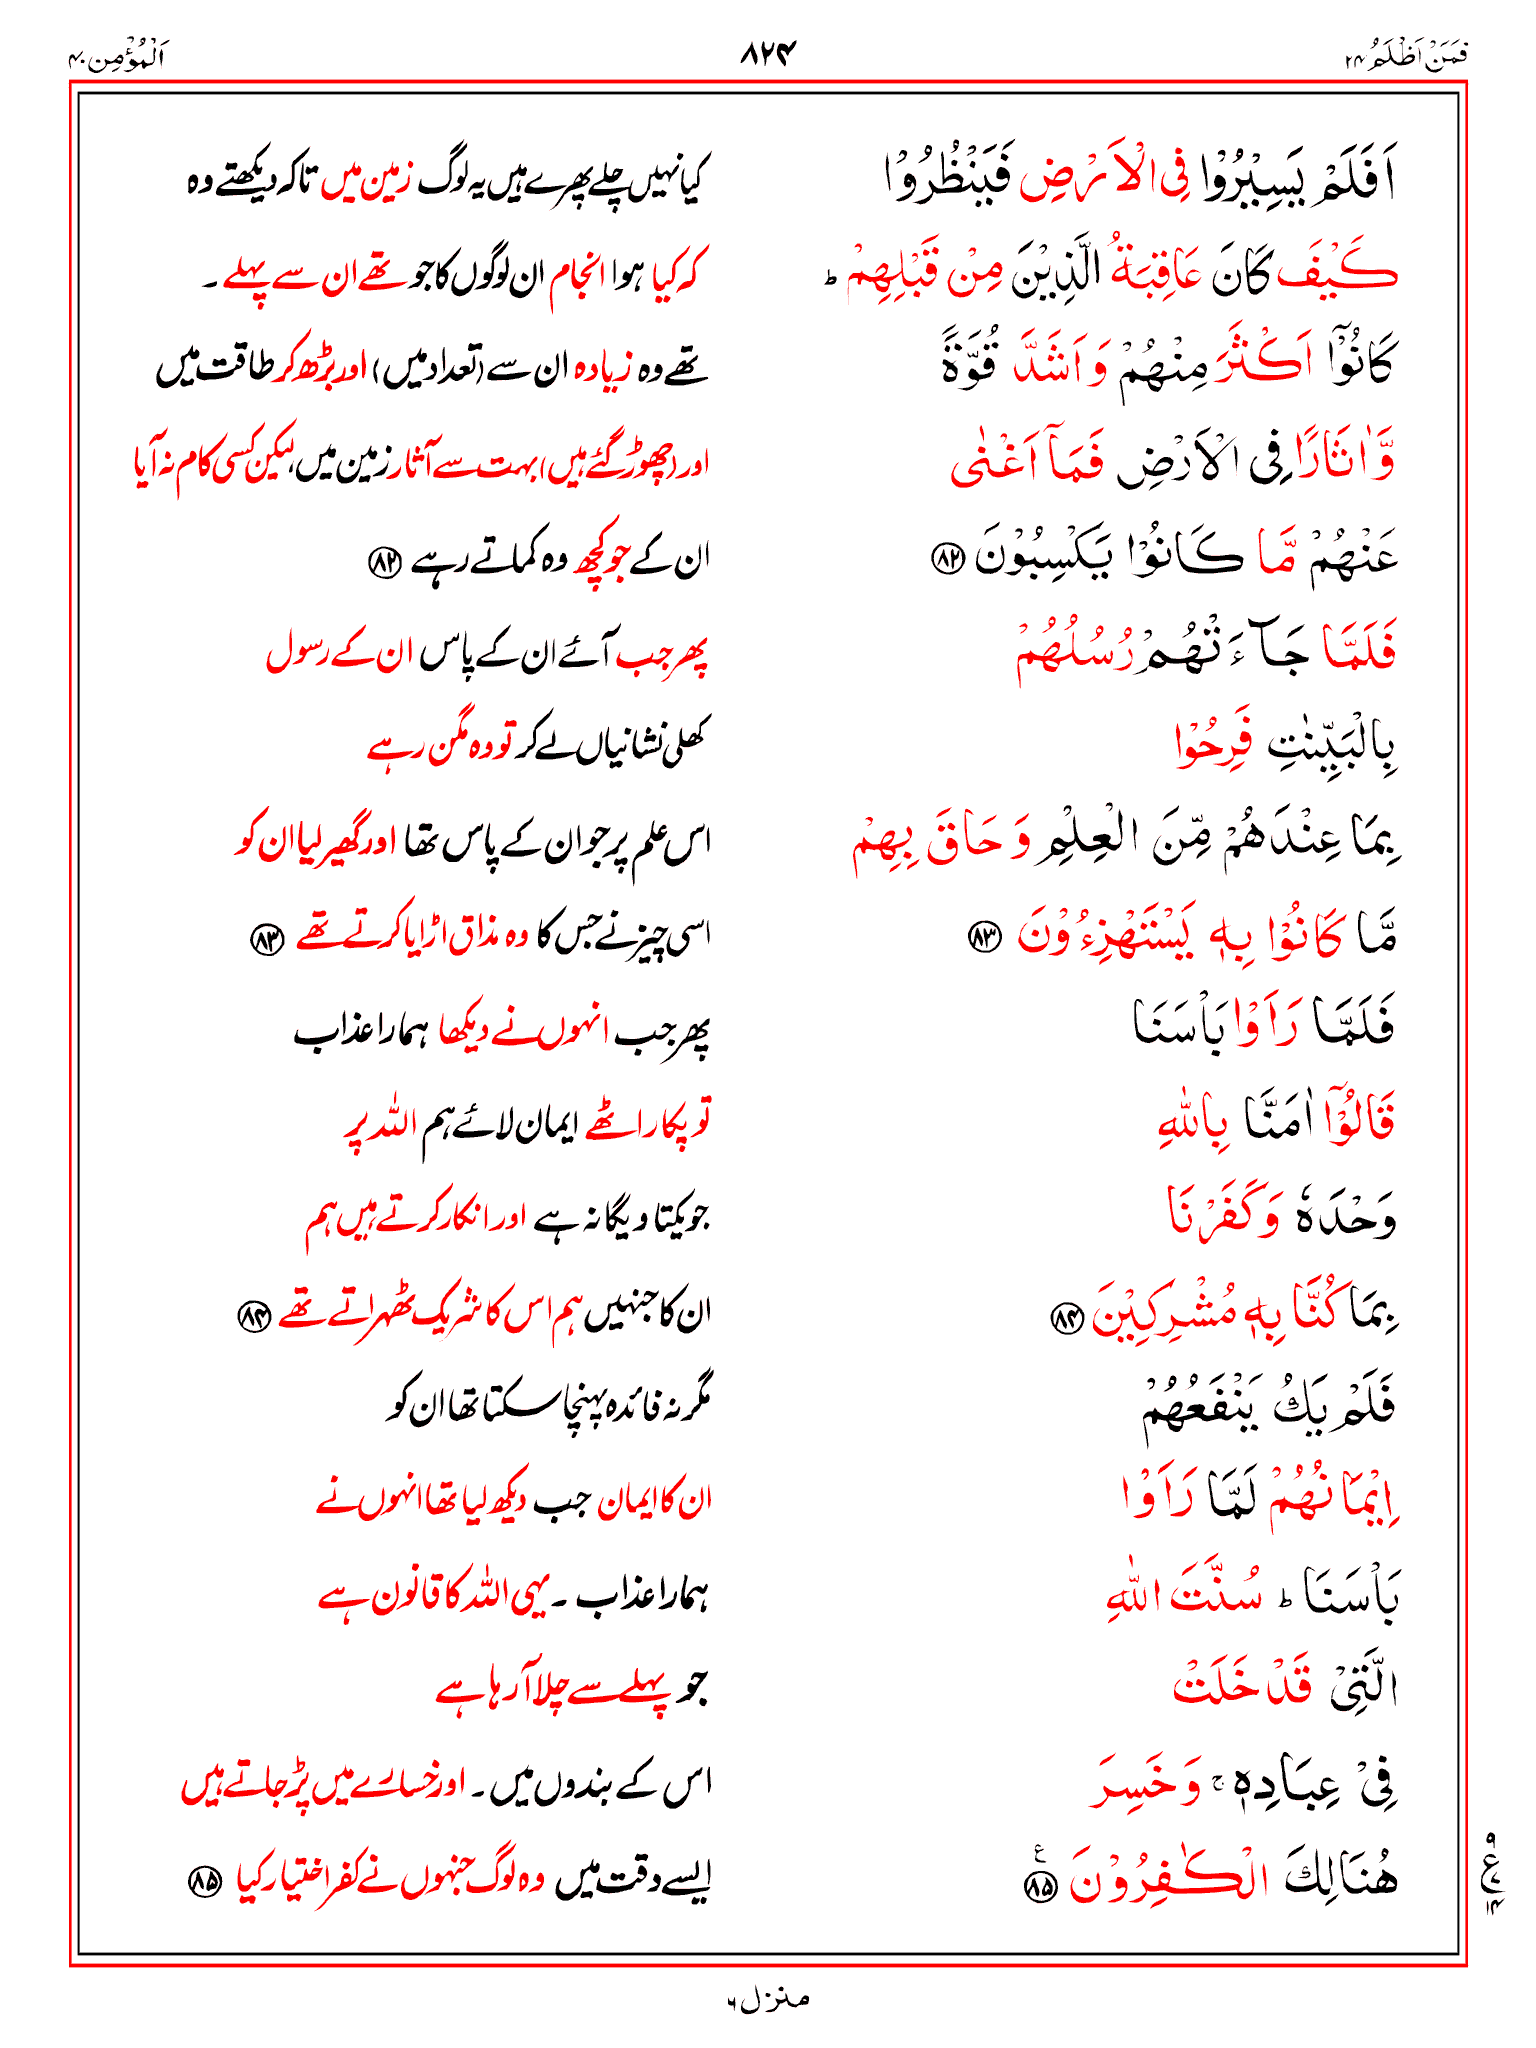 فَمَنْ اَظْلَمُ ۲۴ ۸۲۴ اَلْمُؤْمِن ۴۰
اَفَلَمْ يَسِيْرُوْا فِى الْاَرْضِ فَيَنْظُرُوْا کیا نہیں چلے پھرے ہیں یہ لوگ زمین میں تاکہ دیکھتے وہ
كَيْفَ كَانَ عَاقِبَةُ الَّذِيْنَ مِنْ قَبْلِهِمْ ؕ کہ کیا ہوا انجام ان لوگوں کا جو تھے ان سے پہلے ۔
كَانُوْۤا اَكْثَرَ مِنْهُمْ وَ اَشَدَّ قُوَّةً تھے وہ زیادہ ان سے (تعداد میں) اور بڑھ کر طاقت میں
وَّ اٰثَارًا فِى الْاَرْضِ فَمَاۤ اَغْنٰى اور (چھوڑ گئے ہیں) بہت سے آثار زمین میں لیکن کسی کام نہ آیا
عَنْهُمْ مَّا كَانُوْا يَكْسِبُوْنَ ۸۲ ان کے جو کچھ وہ کماتے رہے ۸۲
فَلَمَّا جَآءَتْهُمْ رُسُلُهُمْ پھر جب آئے ان کے پاس ان کے رسول
بِالْبَيِّنٰتِ فَرِحُوْا کھلی نشانیاں لے کر تو وہ مگن رہے
بِمَا عِنْدَهُمْ مِّنَ الْعِلْمِ وَ حَاقَ بِهِمْ اس علم پر جو ان کے پاس تھا اور گھیر لیا ان کو
مَّا كَانُوْا بِهٖ يَسْتَهْزِءُوْنَ ۸۳ اسی چیز نے جس کا وہ مذاق اڑایا کرتے تھے ۸۳
فَلَمَّا رَاَوْا بَاْسَنَا پھر جب انہوں نے دیکھا ہمارا عذاب
قَالُوْۤا اٰمَنَّا بِاللّٰهِ تو پکار اٹھے ایمان لائے ہم اللہ پر
وَحْدَهٗ وَ كَفَرْنَا جو یکتا و یگانہ ہے اور انکار کرتے ہیں ہم
بِمَا كُنَّا بِهٖ مُشْرِكِيْنَ ۸۴ ان کا جنہیں ہم اس کا شریک ٹھہراتے تھے ۸۴
فَلَمْ يَكُ يَنْفَعُهُمْ مگر نہ فائدہ پہنچا سکتا تھا ان کو
اِيْمَانُهُمْ لَمَّا رَاَوْا ان کا ایمان جب دیکھ لیا تھا انہوں نے
بَاْسَنَا ؕ سُنَّتَ اللّٰهِ ہمارا عذاب ۔ یہی اللہ کا قانون ہے
الَّتِىْ قَدْ خَلَتْ جو پہلے سے چلا آ رہا ہے
فِىْ عِبَادِهٖ ۚ وَ خَسِرَ اس کے بندوں میں ۔ اور خسارے میں پڑ جاتے ہیں
هُنَالِكَ الْكٰفِرُوْنَ ۸۵ ع ایسے وقت میں وہ لوگ جنہوں نے کفر اختیار کیا ۸۵
۹ ع ۱۴
منزل ۶